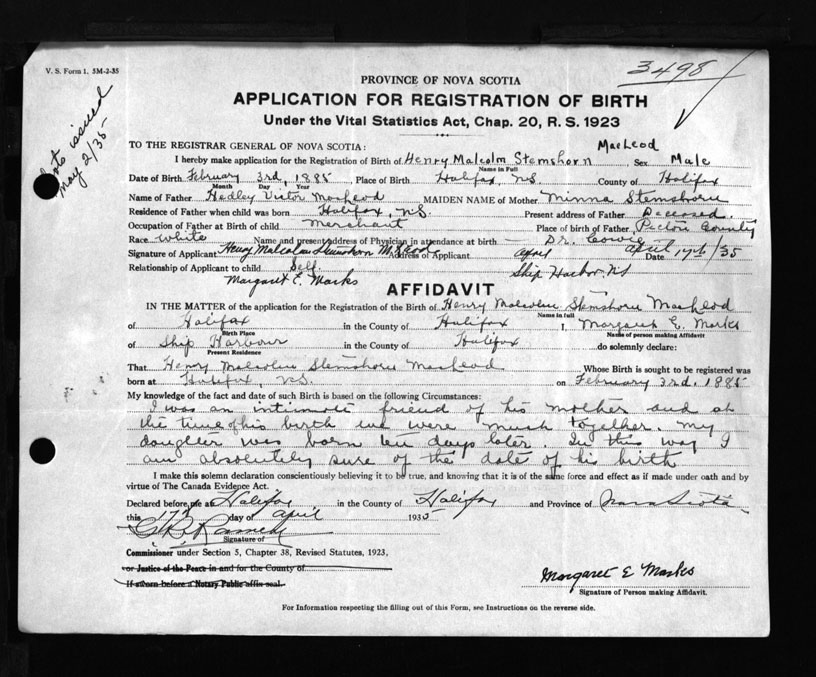 V. S. Form 1. 5M-2-35
3498
PROVINCE OF NOVA SCOTIA
APPLICATION FOR REGISTRATION OF BIRTH
Under the Vital Statistics Act, Chap. 20, R. S. 1923
issued
May 2/35
TO THE REGISTRAR GENERAL OF NOVA SCOTIA:
MacLeod
I hereby make application for the Registration of Birth of Henry Malcolm Stemshorn Sex Male
Name in Full
Date of Birth February 3rd, 1885, Place of Birth Halifax, NS County of Halifax
Month Day Year
Name of Father Hedley Victor MacLeod MAIDEN NAME of Mother Minna Stemshorn
Residence of Father when child was born Halifax, NS. Present address of Father Deceased.
Occupation of Father at Birth of child Merchant Place of birth of Father Pictou County
Race White Name and present address of Physician in attendance at birth — Dr. Cowie
Signature of Applicant Henry Malcolm Stemshorn McLeod Address of Applicant April Date April 17th/35
Relationship of Applicant to child Self Ship Harbor NS
Margaret E. Marks
AFFIDAVIT
IN THE MATTER of the application for the Registration of the Birth of Henry Malcolm Stemshorn MacLeod
Name in full
of Halifax in the County of Halifax I, Margaret E. Marks
Birth Place Name of person making Affidavit
of Ship Harbour in the County of Halifax do solemnly declare:
Present Residence
That Henry Malcolm Stemshorn MacLeod Whose Birth is sought to be registered was
born at Halifax, NS. on February 3rd, 1885
My knowledge of the fact and date of such Birth is based on the following Circumstances:
I was an intimate friend of his mother and at
the time of his birth we were much together. My
daughter was born ten days later. In this way I
am absolutely sure of the date of his birth
I make this solemn declaration conscientiously believing it to be true, and knowing that it is of the same force and effect as if made under oath and by
virtue of The Canada Evidence Act.
Declared before me at Halifax in the County of Halifax and Province of Nova Scotia
this 17th day of April 1935
Signature of
Commissioner under Section 5, Chapter 38, Revised Statutes, 1923,
or Justice of the Peace in and for the County of
If sworn before a Notary Public affix seal.
Margaret E Marks
Signature of Person making Affidavit.
For Information respecting the filling out of this Form, see Instructions on the reverse side.